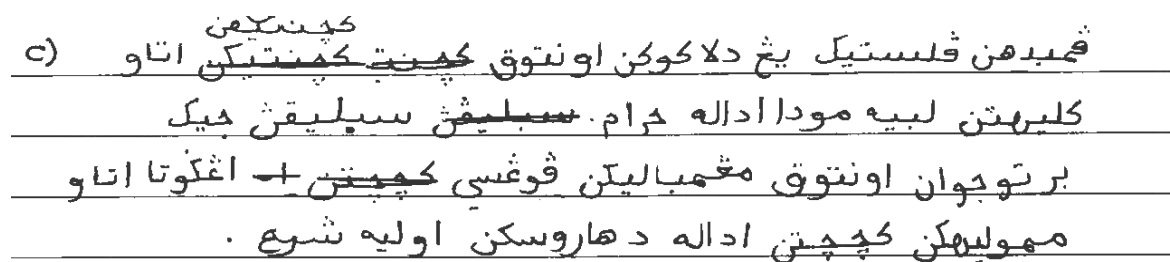 کچنتيقن
c) ڤمبدهن ڤلستيک يڠ دلاکوکن اونتوق کچنت کچنتيکن اتاو
کليهتن لبيه مودا اداله حرام. سبليقڽ سبليقڽ جيک
برتوجوان اونتوق مڠمباليکن فوڠسي کچچتن ا اڠݢوتا اتاو
مموليهکن کچچتن اداله دهاروسکن اوليه شرع.